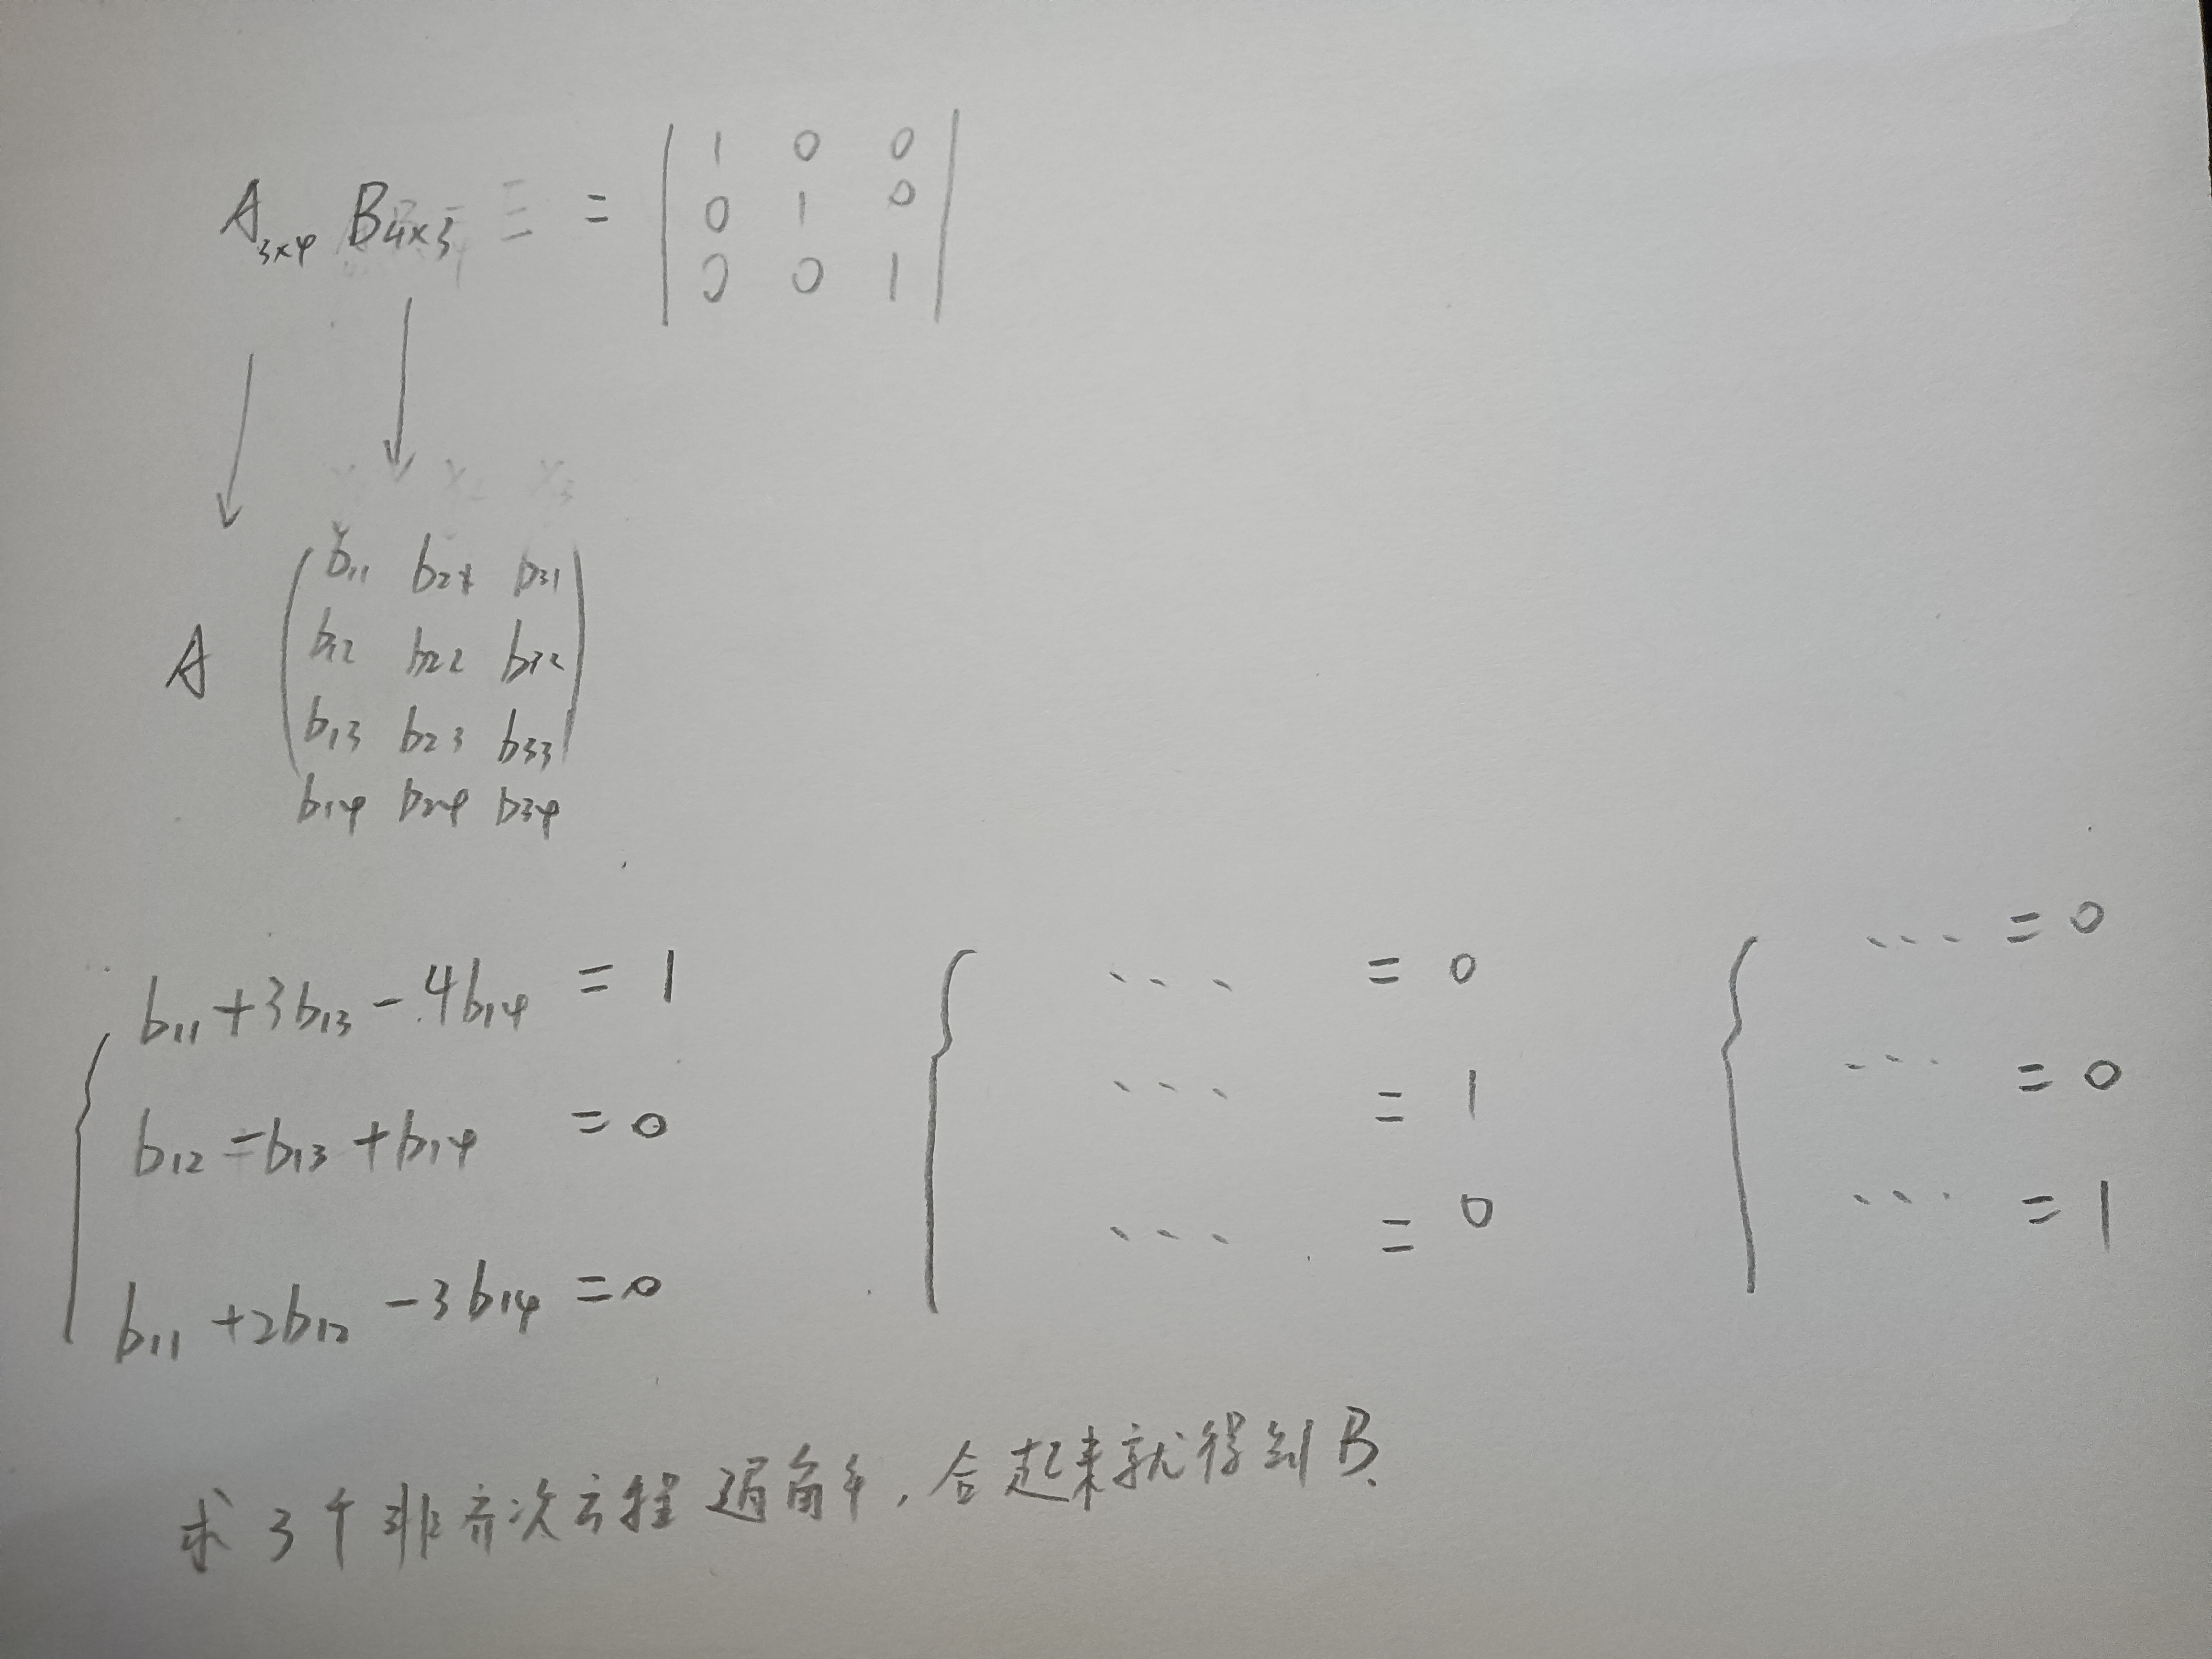 A₃ₓ₄ B₄ₓ₃ = | 1 0 0 |
| 0 1 0 |
| 0 0 1 |
A ( b₁₁ b₂₁ b₃₁ )
b₁₂ b₂₂ b₃₂
b₁₃ b₂₃ b₃₃
b₁₄ b₂₄ b₃₄
b₁₁ + 3b₁₃ - 4b₁₄ = 1 { ... = 0 { ... = 0
{ b₁₂ - b₁₃ + b₁₄ = 0 ... = 1 ... = 0
b₁₁ + 2b₁₂ - 3b₁₄ = 0 ... = 0 ... = 1
求3个非齐次方程通解,合起来就得到B.